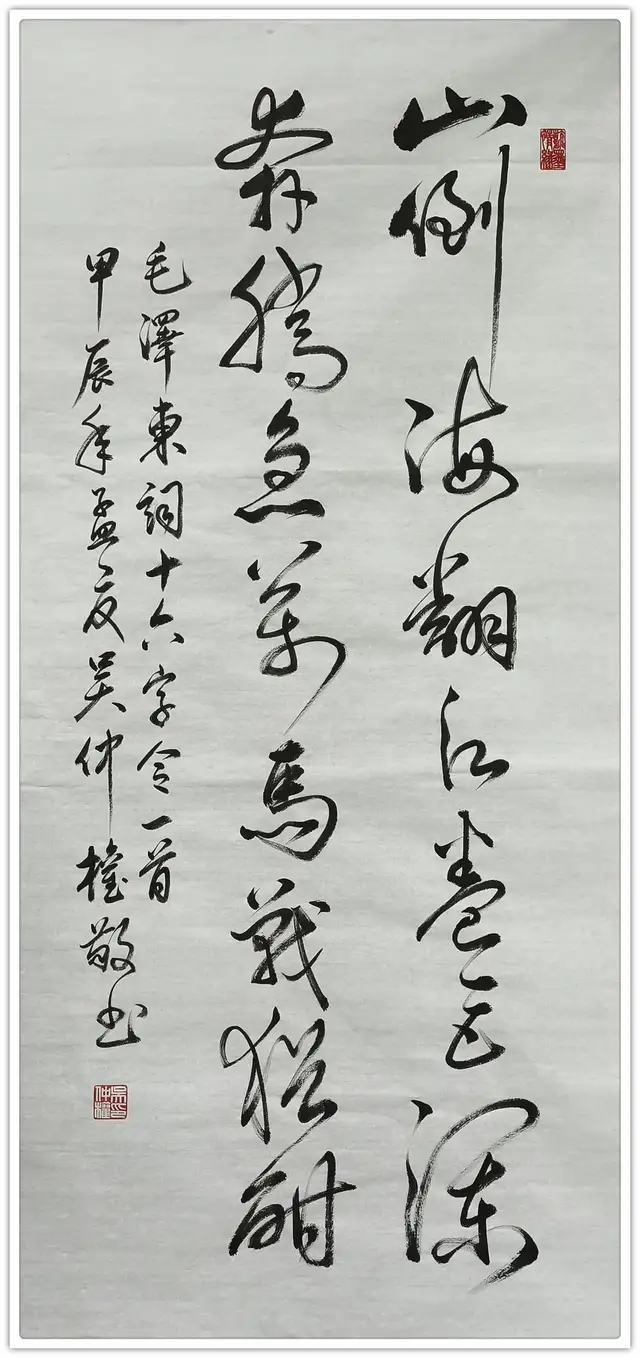 山倒海翻江卷巨澜
奔腾急萬馬戰猶酣
毛澤東詞十六字令一首
甲辰年孟夏吴仲權敬书